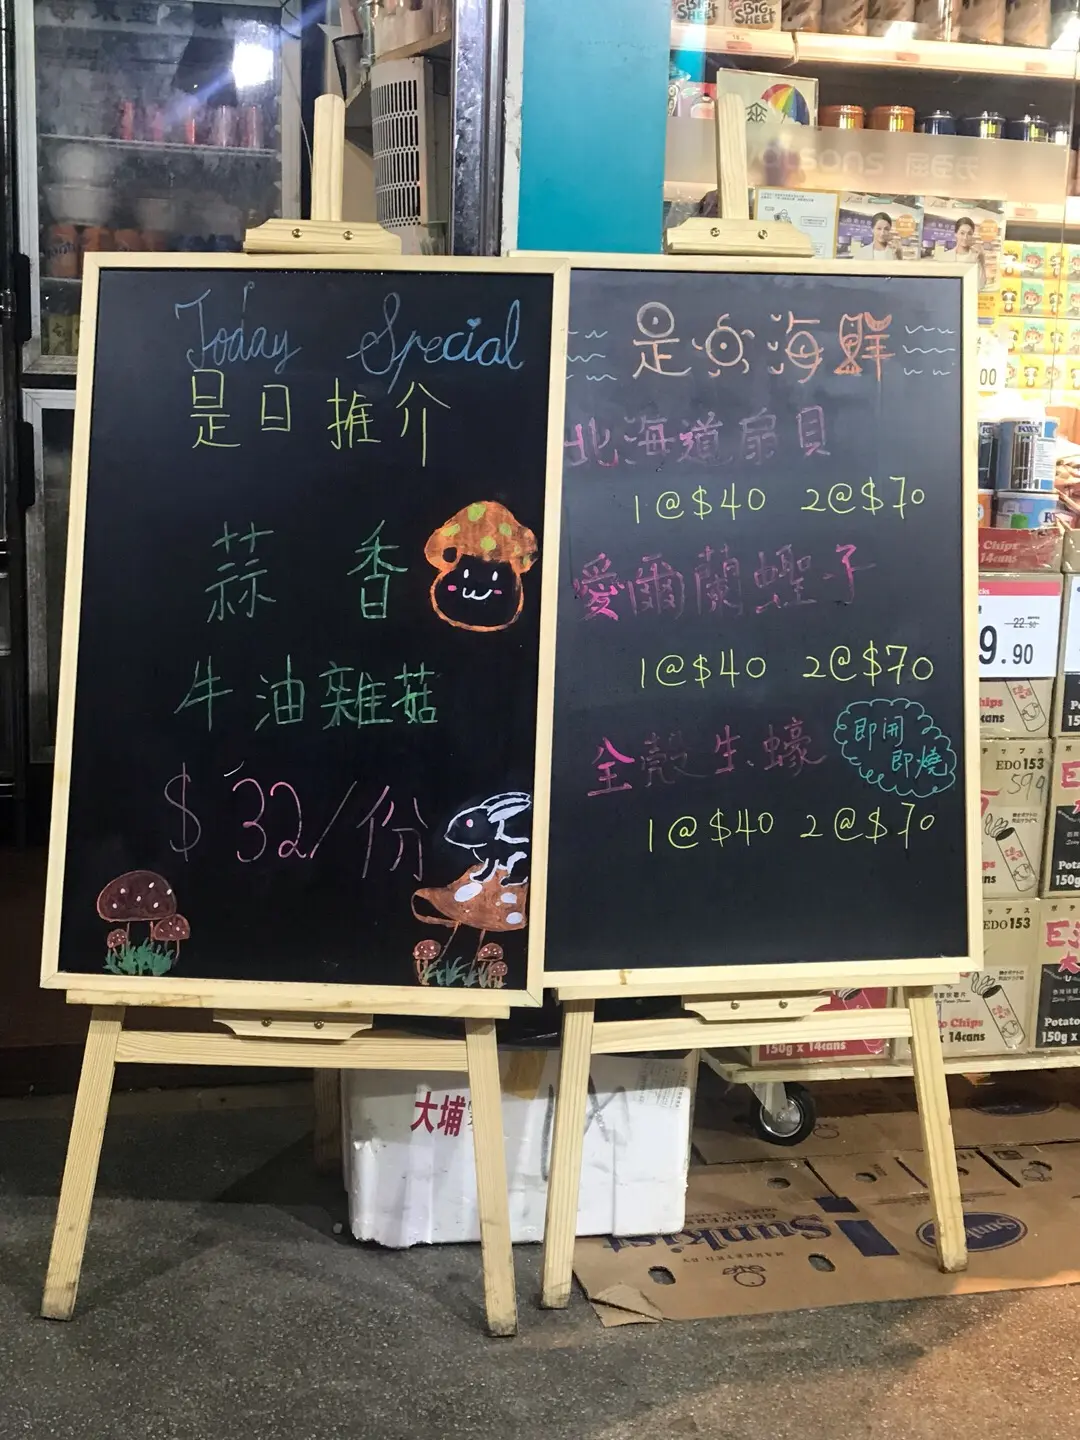 Today Special
是日推介
蒜香
牛油雜菇
$32/份
是日海鮮
北海道扇貝
1@$40 2@$70
愛爾蘭蟶子
1@$40 2@$70
全殼生蠔
即開
即燒
1@$40 2@$70
BIG
SHEET
BIG
SHEET
watsons 屈臣氏
FOX'S
Chips
14cans
22.90
9.90
EDO153
590
Potato
150g x
EDO153
Potato Chips
150g x 14cans
大埔
Sunkist
GROWERS
MARKETED BY
Sunkist